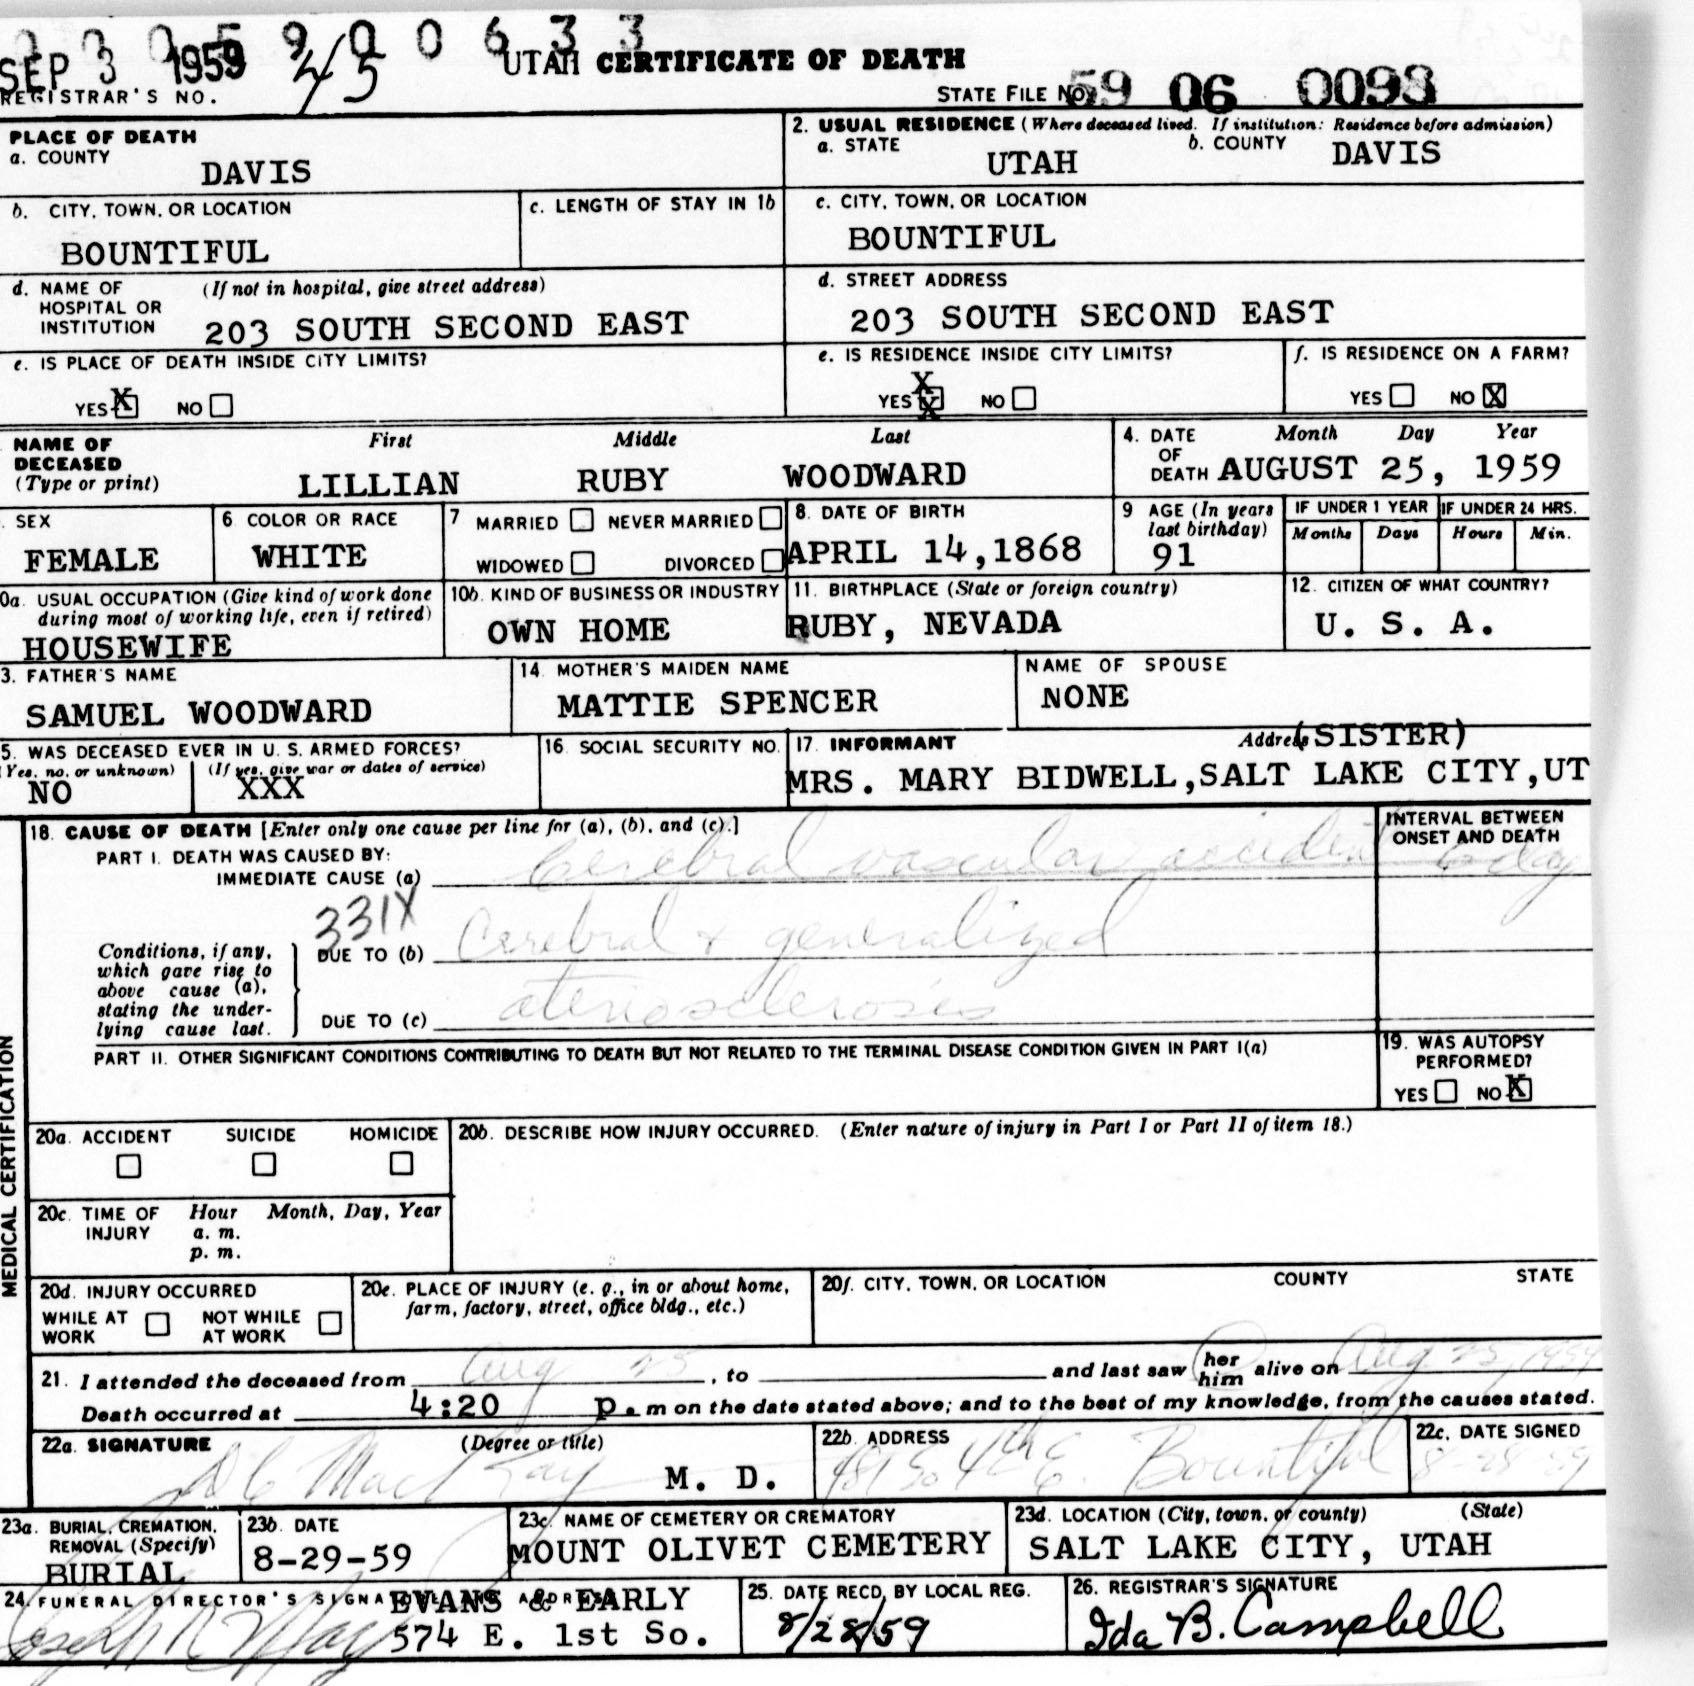 0005900633
SEP 3 1959 45 UTAH CERTIFICATE OF DEATH
REGISTRAR'S NO. STATE FILE NO. 59 06 0098
PLACE OF DEATH
a. COUNTY
DAVIS
2. USUAL RESIDENCE (Where deceased lived. If institution: Residence before admission)
a. STATE UTAH b. COUNTY DAVIS
b. CITY, TOWN, OR LOCATION
BOUNTIFUL
c. LENGTH OF STAY IN 1b
c. CITY, TOWN, OR LOCATION
BOUNTIFUL
d. NAME OF HOSPITAL OR INSTITUTION (If not in hospital, give street address)
203 SOUTH SECOND EAST
d. STREET ADDRESS
203 SOUTH SECOND EAST
e. IS PLACE OF DEATH INSIDE CITY LIMITS?
YES X NO
e. IS RESIDENCE INSIDE CITY LIMITS?
YES X X NO
f. IS RESIDENCE ON A FARM?
YES NO X
NAME OF DECEASED (Type or print)
First Middle Last
LILLIAN RUBY WOODWARD
4. DATE OF DEATH Month Day Year
AUGUST 25, 1959
SEX
FEMALE
6 COLOR OR RACE
WHITE
7 MARRIED NEVER MARRIED
WIDOWED DIVORCED
8. DATE OF BIRTH
APRIL 14,1868
9 AGE (In years last birthday)
91
IF UNDER 1 YEAR IF UNDER 24 HRS.
Months Days Hours Min.
0a. USUAL OCCUPATION (Give kind of work done during most of working life, even if retired)
HOUSEWIFE
10b. KIND OF BUSINESS OR INDUSTRY
OWN HOME
11. BIRTHPLACE (State or foreign country)
RUBY, NEVADA
12. CITIZEN OF WHAT COUNTRY?
U. S. A.
3. FATHER'S NAME
SAMUEL WOODWARD
14. MOTHER'S MAIDEN NAME
MATTIE SPENCER
NAME OF SPOUSE
NONE
5. WAS DECEASED EVER IN U. S. ARMED FORCES?
(Yes, no, or unknown) (If yes, give war or dates of service)
NO XXX
16. SOCIAL SECURITY NO.
17. INFORMANT Address (SISTER)
MRS. MARY BIDWELL,SALT LAKE CITY,UT
MEDICAL CERTIFICATION
18. CAUSE OF DEATH [Enter only one cause per line for (a), (b), and (c).]
PART I. DEATH WAS CAUSED BY:
IMMEDIATE CAUSE (a) Cerebral vascular accident
INTERVAL BETWEEN ONSET AND DEATH
day
331X
Conditions, if any, which gave rise to above cause (a), stating the underlying cause last.
DUE TO (b) Cerebral & generalized
DUE TO (c) ateriosclerosis
PART II. OTHER SIGNIFICANT CONDITIONS CONTRIBUTING TO DEATH BUT NOT RELATED TO THE TERMINAL DISEASE CONDITION GIVEN IN PART I(a)
19. WAS AUTOPSY PERFORMED?
YES NO X
20a. ACCIDENT SUICIDE HOMICIDE
20b. DESCRIBE HOW INJURY OCCURRED. (Enter nature of injury in Part I or Part II of item 18.)
20c. TIME OF INJURY Hour Month, Day, Year
a. m.
p. m.
20d. INJURY OCCURRED
WHILE AT WORK NOT WHILE AT WORK
20e. PLACE OF INJURY (e. g., in or about home, farm, factory, street, office bldg., etc.)
20f. CITY, TOWN, OR LOCATION COUNTY STATE
21. I attended the deceased from Aug 25, to and last saw her him alive on Aug 25, 1959
Death occurred at 4:20 p. m on the date stated above; and to the best of my knowledge, from the causes stated.
22a. SIGNATURE (Degree or title)
D C MacKay M. D.
22b. ADDRESS
So. 4th E. Bountiful
22c. DATE SIGNED
8-28-59
23a. BURIAL, CREMATION, REMOVAL (Specify)
BURIAL
23b. DATE
8-29-59
23c. NAME OF CEMETERY OR CREMATORY
MOUNT OLIVET CEMETERY
23d. LOCATION (City, town, or county) (State)
SALT LAKE CITY, UTAH
24. FUNERAL DIRECTOR'S SIGNATURE ADDRESS
EVANS & EARLY
574 E. 1st So.
25. DATE RECD. BY LOCAL REG.
8/28/59
26. REGISTRAR'S SIGNATURE
Ida B. Campbell